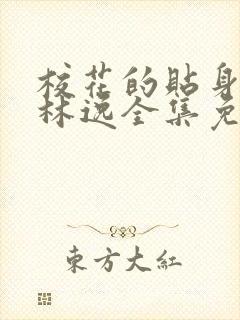 校花的貼身
林逸全集免
東方大紅